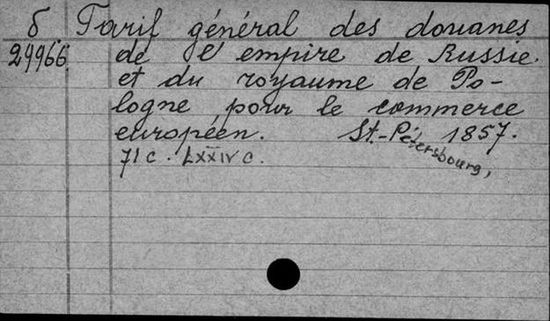 б Tarif général des douanes
29966 de l'empire de Russie
et du royaume de Po-
logne pour le commerce
européen. St.-Pétersbourg, 1857.
71 с. LXXIV с.